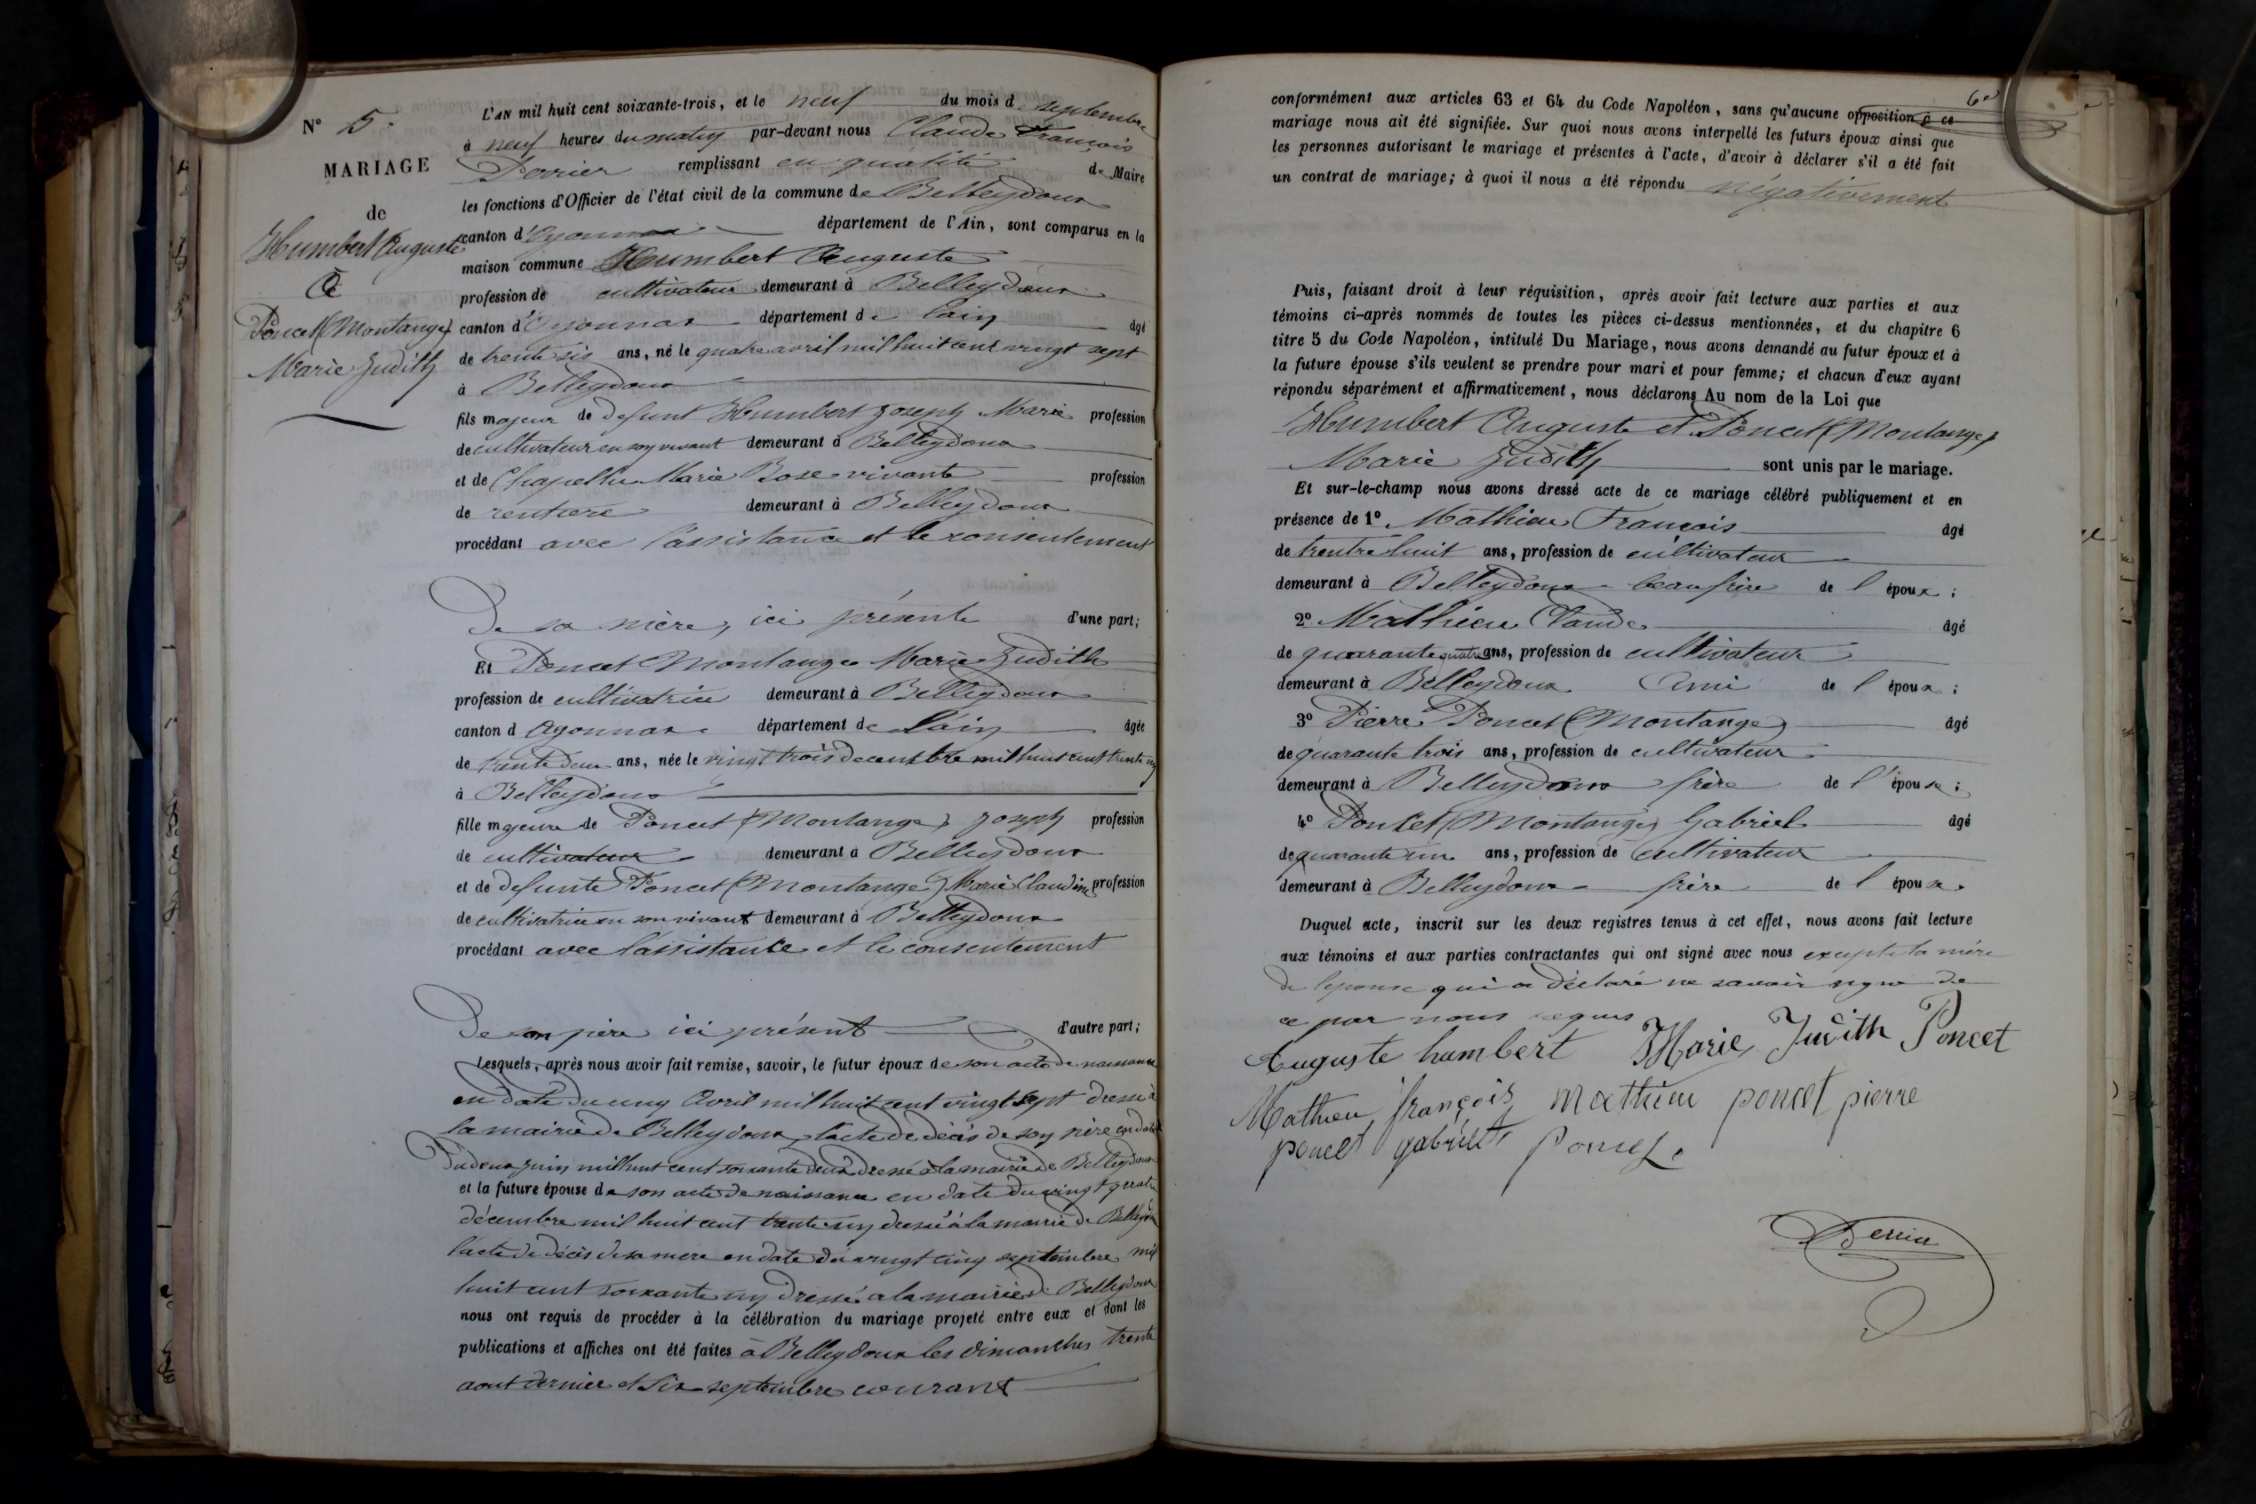 N° 5.
MARIAGE
de
Humbert Auguste
et
Poncet (Montange)
Marie Judith
L'AN mil huit cent soixante-trois, et le neuf du mois de septembre
à neuf heures du matin par-devant nous Claude François
Perrier remplissant en qualité de Maire
les fonctions d'Officier de l'état civil de la commune de Belleydoux
canton d'Oyonnax département de l'Ain, sont comparus en la
maison commune Humbert Auguste
profession de cultivateur demeurant à Belleydoux
canton d'Oyonnax département de l'ain âgé
de trente six ans, né le quatre avril mil huit cent vingt sept
à Belleydoux
fils majeur de defunt Humbert Joseph Marie profession
de cultivateur en son vivant demeurant à Belleydoux
et de Chapellu Marie Rose vivante profession
de rentiere demeurant à Belleydoux
procédant avec l'assistance et le consentement
De sa mère, ici présente d'une part;
Et Poncet Montange Marie Judith
profession de cultivatrice demeurant à Belleydoux
canton d'Oyonnax département de l'ain âgée
de trente deux ans, née le vingt trois decembre mil huit cent trente un
à Belleydoux
fille majeure de Poncet (Montange) Joseph profession
de cultivateur demeurant à Belleydoux
et de defunte Poncet (Montange) Marie Claudine profession
de cultivatrice en son vivant demeurant à Belleydoux
procédant avec l'assistance et le consentement
De son père ici présent d'autre part;
Lesquels, après nous avoir fait remise, savoir, le futur époux de son acte de naissance
en date du cinq Avril mil huit cent vingt sept dressé à
la mairie de Belleydoux, l'acte de décès de son père en date
Du deux juin mil huit cent soixante deux dressé à la mairie de Belleydoux
et la future épouse de son acte de naissance en date du vingt quatre
décembre mil huit cent trente un dressé à la mairie de Belleydoux
l'acte de décès de sa mère en date du vingt cinq septembre mil
huit cent soixante un dressé a la mairie de Belleydoux
nous ont requis de procéder à la célébration du mariage projeté entre eux et dont les
publications et affiches ont été faites à Belleydoux les dimanches trente
aout dernier et six septembre courant
conformément aux articles 63 et 64 du Code Napoléon, sans qu'aucune opposition à ce
mariage nous ait été signifiée. Sur quoi nous avons interpellé les futurs époux ainsi que
les personnes autorisant le mariage et présentes à l'acte, d'avoir à déclarer s'il a été fait
un contrat de mariage; à quoi il nous a été répondu négativement
Puis, faisant droit à leur réquisition, après avoir fait lecture aux parties et aux
témoins ci-après nommés de toutes les pièces ci-dessus mentionnées, et du chapitre 6
titre 5 du Code Napoléon, intitulé Du Mariage, nous avons demandé au futur époux et à
la future épouse s'ils veulent se prendre pour mari et pour femme; et chacun d'eux ayant
répondu séparément et affirmativement, nous déclarons Au nom de la Loi que
Humbert Auguste et Poncet (Montange)
Marie Judith sont unis par le mariage.
Et sur-le-champ nous avons dressé acte de ce mariage célébré publiquement et en
présence de 1° Mathieu François âgé
de trentre huit ans, profession de cultivateur
demeurant à Belleydoux beau frère de l époux;
2° Mathieu Claude âgé
de quarante quatre ans, profession de cultivateur
demeurant à Belleydoux Ami de l époux;
3° Pierre Poncet (Montange) âgé
de quarante trois ans, profession de cultivateur
demeurant à Belleydoux frère de l'épouse;
4° Poncet (Montange) Gabriel âgé
de quarante un ans, profession de cultivateur
demeurant à Belleydoux frère de l épouse.
Duquel acte, inscrit sur les deux registres tenus à cet effet, nous avons fait lecture
aux témoins et aux parties contractantes qui ont signé avec nous excepté la mère
de lepouse qui a déclaré ne savoir signé de
ce par nous requis
Auguste humbert Marie Judith Poncet
Mathieu françois mathieu poncet pierre
poncet gabriel Poncet
Perrier